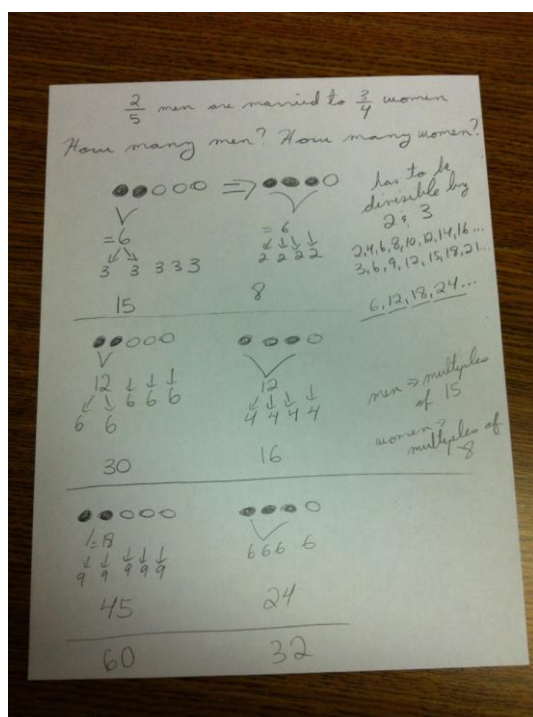 2/5 men are married to 3/4 women
How many men? How many women?
⇒
has to be
divisible by
2 & 3
2,4,6,8,10,12,14,16...
3,6,9,12,15,18,21...
6,12,18,24...
=6
3 3 3 3 3
15
=6
2 2 2 2
8
12
6 6 6 6 6
30
12
4 4 4 4
16
men ⇒ multiples
of 15
women ⇒
multiples of
8
=18
9 9 9 9 9
45
6 6 6 6
24
60 32